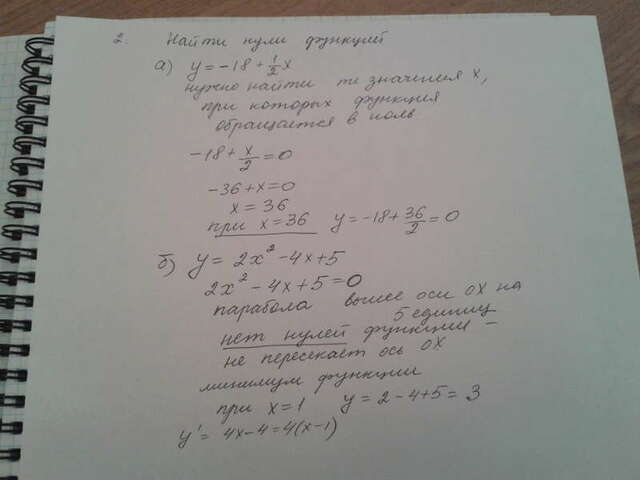 2. Найти нули функцией
а) y = -18 + 1/2 x
нужно найти те значения x,
при которых функция
обращается в ноль
-18 + x/2 = 0
-36 + x = 0
x = 36
при x = 36 y = -18 + 36/2 = 0
б) y = 2x² - 4x + 5
2x² - 4x + 5 = 0
парабола выше оси OX на
5 единиц
нет нулей функции -
не пересекает ось OX
минимум функции
при x = 1 y = 2 - 4 + 5 = 3
y' = 4x - 4 = 4(x - 1)